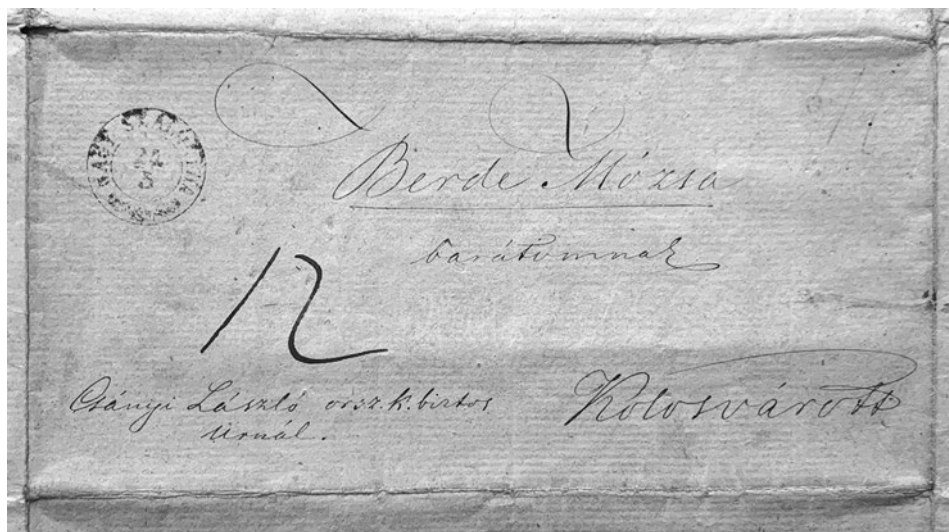 Berde Mózsa
barátomnak
12
Csányi László orsz. k. biztos
Urnál.
Kolosvárott